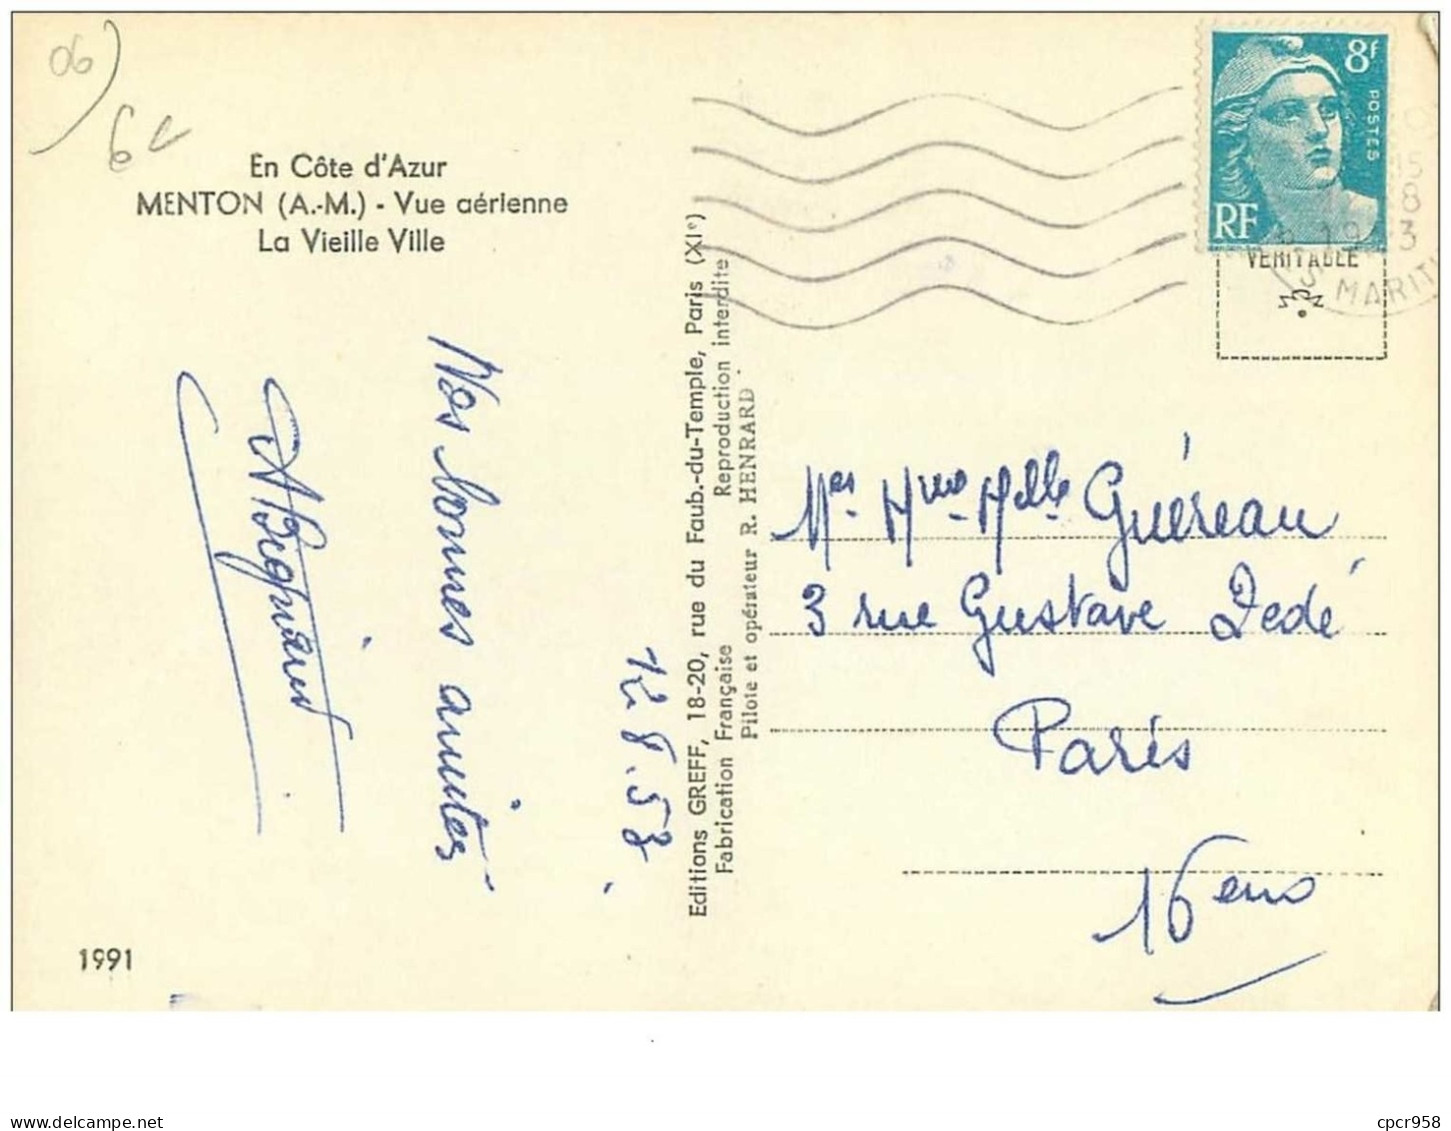 06
6€
En Côte d'Azur
MENTON (A.-M.) - Vue aérienne
La Vieille Ville
8f
POSTES
RF
VÉRITABLE
15
8
19 3
MARIT
Nos bonnes amitiés
12.8.53
Editions GREFF, 18-20, rue du Faub.-du-Temple, Paris (XIe)
Fabrication Française Reproduction interdite
Pilote et opérateur R. HENRARD
Mer Mme Melle Guéreau
3 rue Gustave Zédé
Paris
16eme
1991
cpcr958